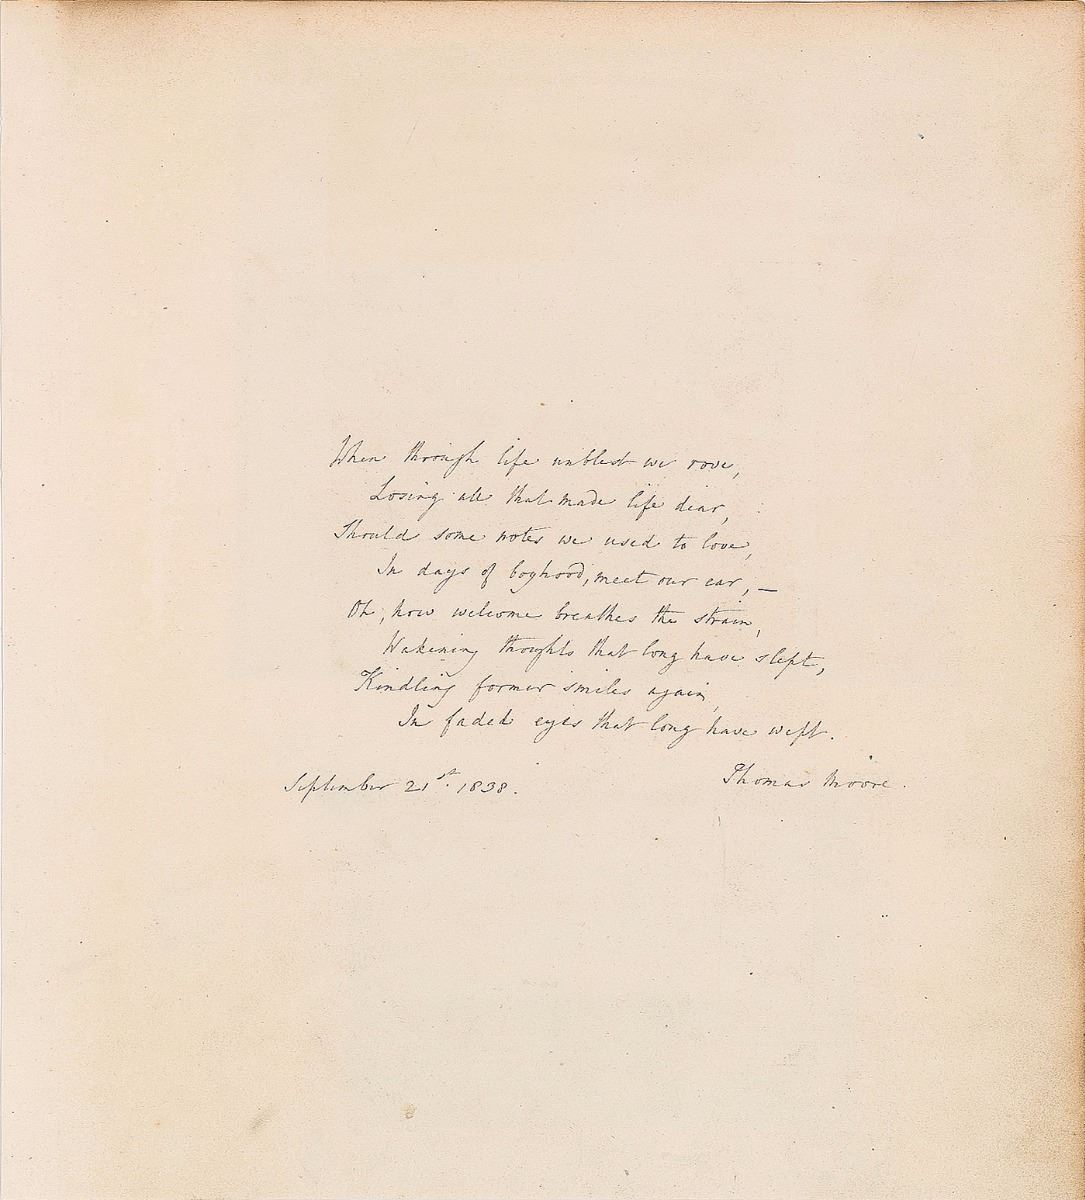 When through life unblest we rove,
Losing all that made life dear,
Should some notes we used to love,
In days of boyhood, meet our ear, —
Oh, how welcome breathes the strain,
Wakening thoughts that long have slept,
Kindling former smiles again,
In faded eyes that long have wept.
September 21st. 1838. Thomas Moore.